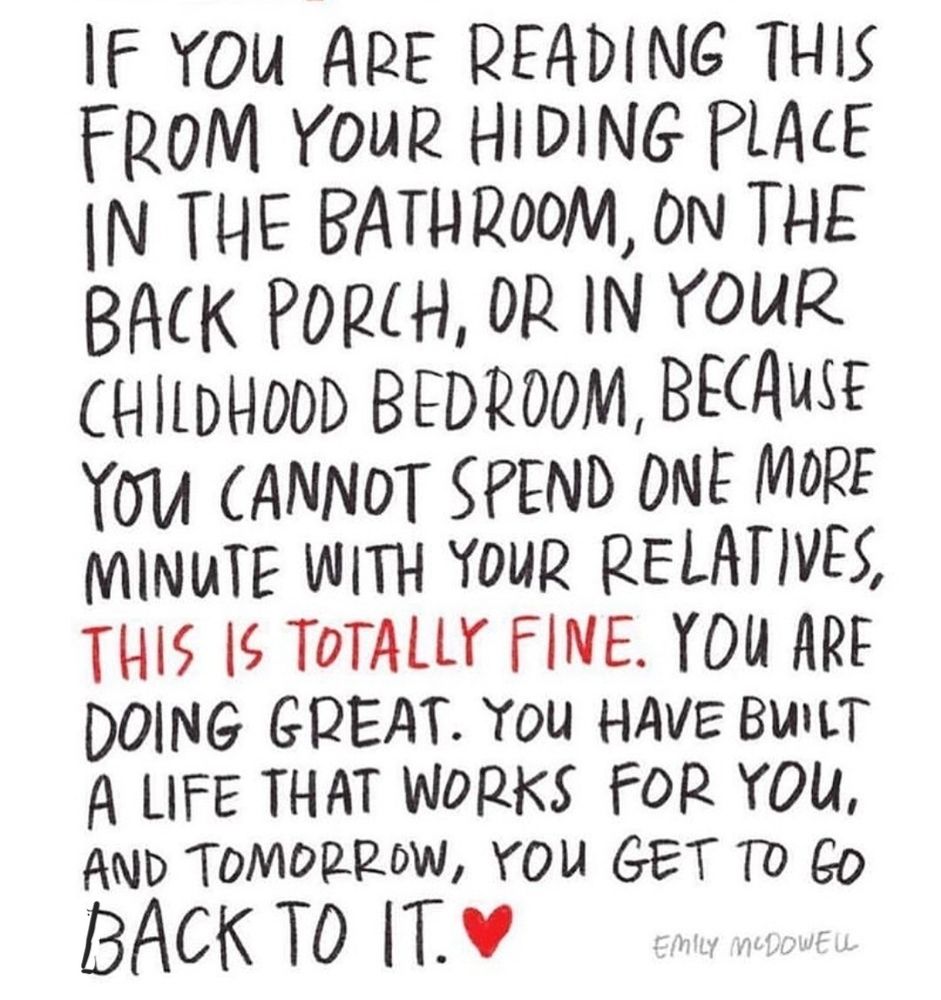 IF YOU ARE READING THIS
FROM YOUR HIDING PLACE
IN THE BATHROOM, ON THE
BACK PORCH, OR IN YOUR
CHILDHOOD BEDROOM, BECAUSE
YOU CANNOT SPEND ONE MORE
MINUTE WITH YOUR RELATIVES,
THIS IS TOTALLY FINE. YOU ARE
DOING GREAT. YOU HAVE BUILT
A LIFE THAT WORKS FOR YOU,
AND TOMORROW, YOU GET TO GO
BACK TO IT. ♥
EMILY MCDOWELL